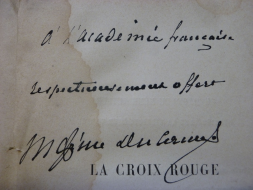 à l'Académie française
respectueusement offert
Maxime du Camp
LA CROIX ROUGE